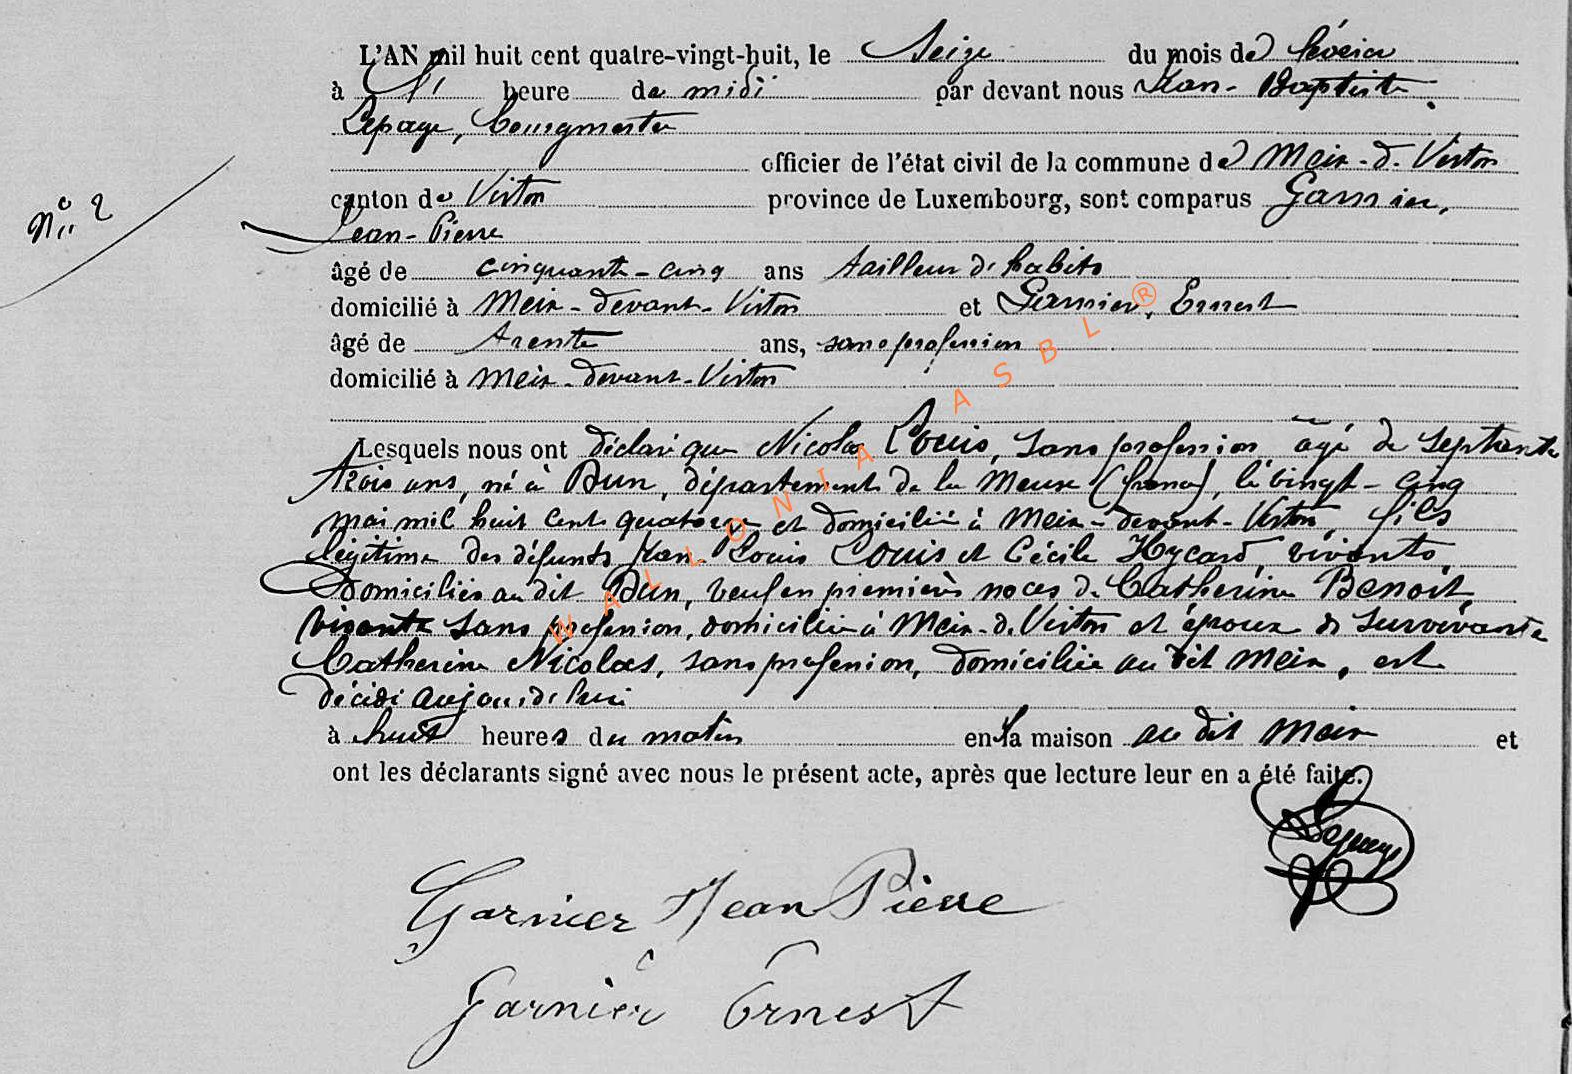 L'AN mil huit cent quatre-vingt-huit, le Seize du mois de février
à heure de midi par devant nous Jean-Baptiste
Lepage, bourgmestre
officier de l'état civil de la commune de Meix-d-Virton
canton de Virton province de Luxembourg, sont comparus Garnier,
N° 2
Jean-Pierre
âgé de cinquante-cinq ans tailleur d'habits
domicilié à Meix-devant-Virton et Garnier, Ernest
âgé de trente ans, sans profession
domicilié à Meix-devant-Virton
Lesquels nous ont déclaré que Nicolas Louis, sans profession âgé de septante
trois ans, né à Dun, département de la Meuse (France), le vingt-cinq
mai mil huit cent quatorze et domicilié à Meix-devant-Virton, fils
légitime des défunts Jean Louis Louis et Cécile Hycard, vivants,
domiciliés au dit Dun, veuf en premières noces de Catherine Benoit,
vivante sans profession, domiciliée à Meix-d-Virton et époux de survivante
Catherine Nicolas, sans profession, domiciliée au dit Meix, est
décédé aujourd'hui
à huit heures du matin en la maison au dit Meix et
ont les déclarants signé avec nous le présent acte, après que lecture leur en a été faite.
Lepage
Garnier Jean Pierre
Garnier Ernest
WALLONIA ASBL ®